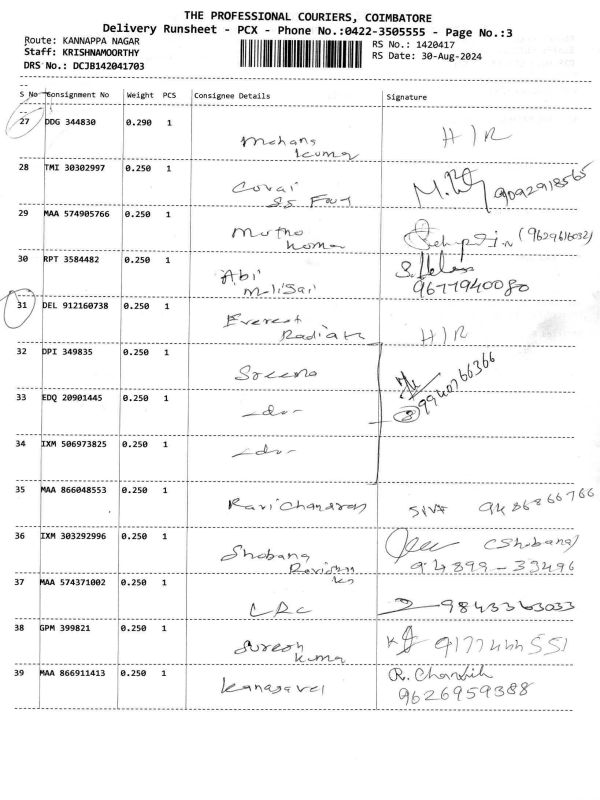 THE PROFESSIONAL COURIERS, COIMBATORE
Delivery Runsheet - PCX - Phone No.:0422-3505555 - Page No.:3
Route: KANNAPPA NAGAR
Staff: KRISHNAMOORTHY
DRS No.: DCJB142041703
RS No.: 1420417
RS Date: 30-Aug-2024
S No Consignment No Weight PCS Consignee Details Signature
27 DDG 344830 0.290 1 H/R
28 TMI 30302997 0.250 1 Covai 9092918565
29 MAA 574905766 0.250 1 (9629616032)
30 RPT 3584482 0.250 1 Abi 9677940080
31 DEL 912160738 0.250 1 Everest H/R
32 DPI 349835 0.250 1 9940766366
33 EDQ 20901445 0.250 1 -do-
34 IXM 506973825 0.250 1 -do-
35 MAA 866048553 0.250 1 Ravi Chandran SIVA 9486866766
36 IXM 303292996 0.250 1 Shobana (Shobana)
94899-33496
37 MAA 574371002 0.250 1 CRC 9843363033
38 GPM 399821 0.250 1 Suresh
Kumar 9177444551
39 MAA 866911413 0.250 1 Kanagavel
9626959388